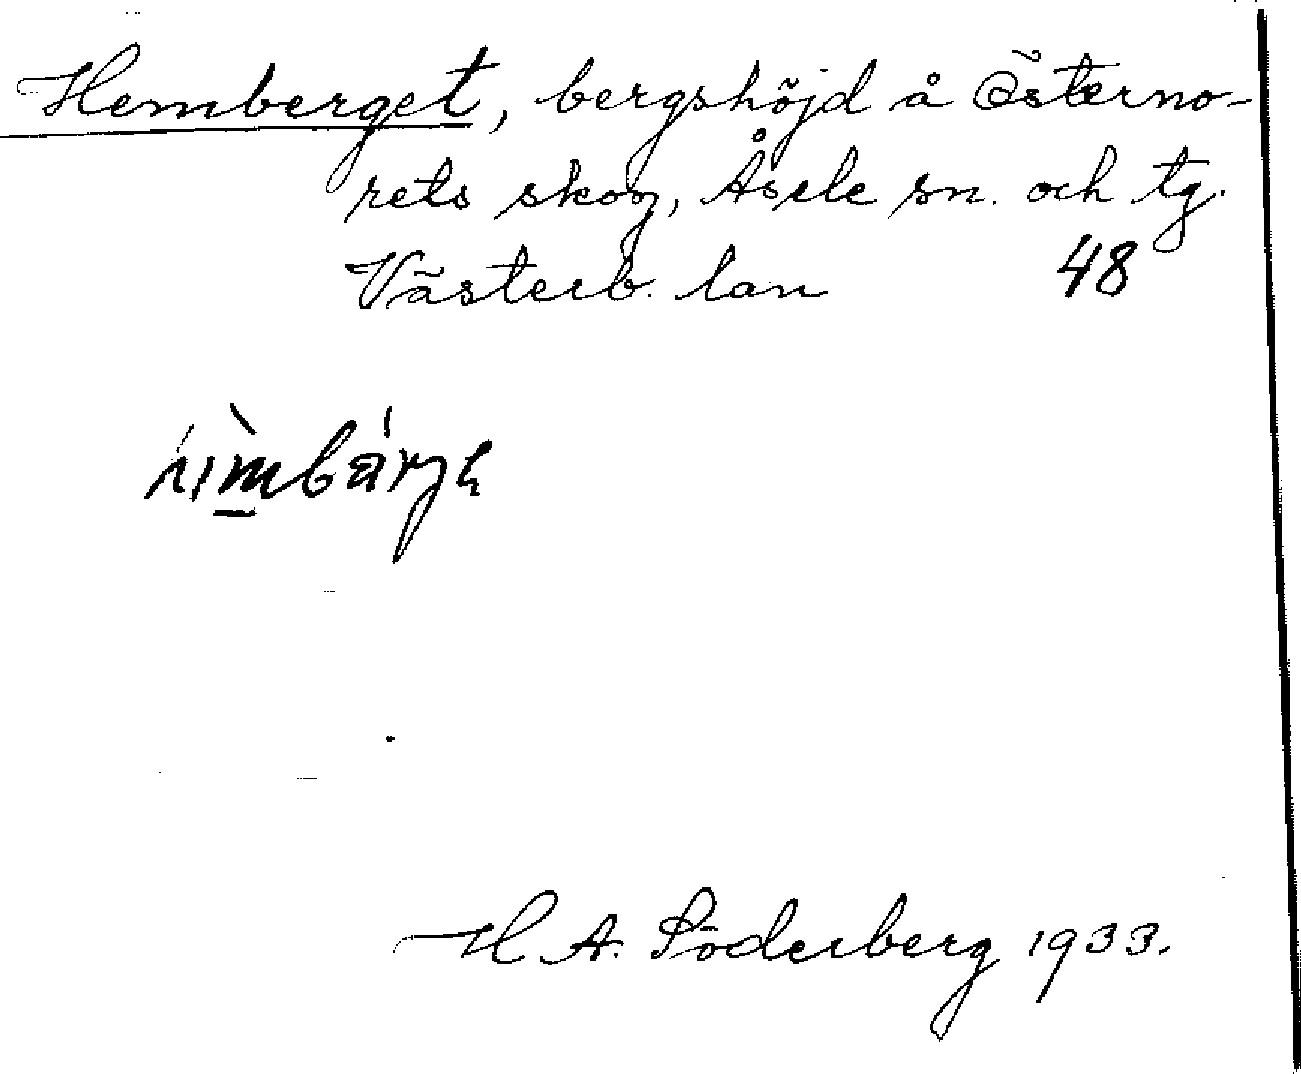 Hemberget, bergshöjd å Österno-
rets skog, Åsele sn. och tg.
Västerb. län 48
H. A. Söderberg 1933.